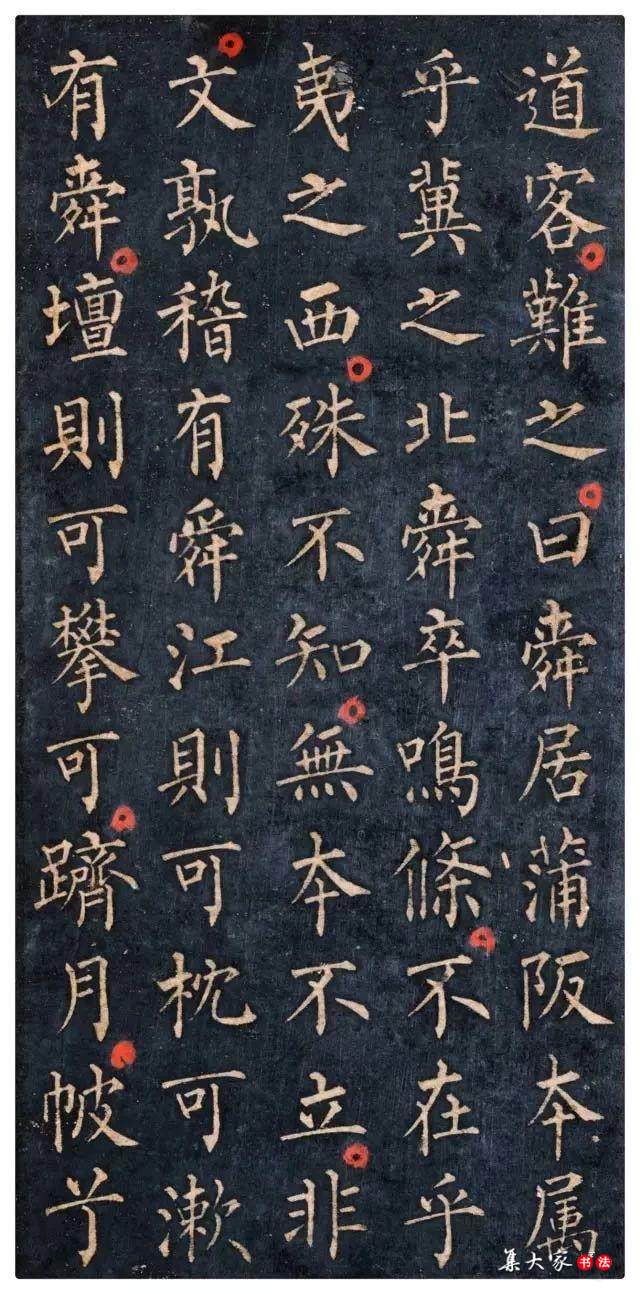 道客難之曰舜居蒲阪本属
乎冀之北舜卒鳴條不在乎
夷之西殊不知無本不立非
文孰稽有舜江則可枕可漱
有舜壇則可攀可躋月帔丫
集大家书法